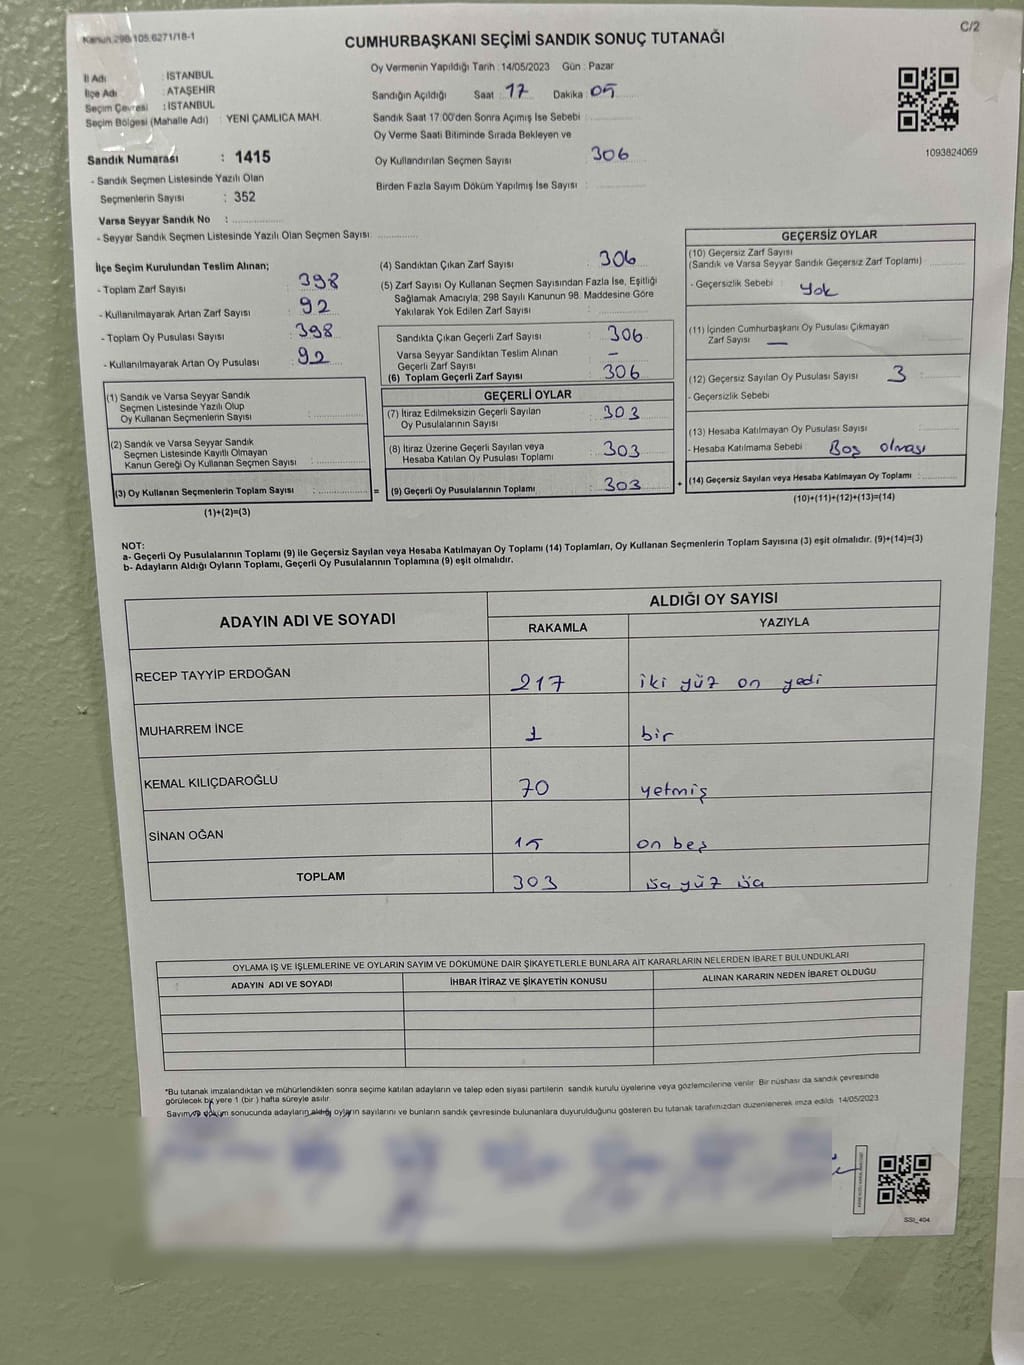 Kanun 298/105.6271/18-1
C/2
CUMHURBAŞKANI SEÇİMİ SANDIK SONUÇ TUTANAĞI
İl Adı : İSTANBUL
İlçe Adı : ATAŞEHİR
Seçim Çevresi : İSTANBUL
Seçim Bölgesi (Mahalle Adı) : YENİ ÇAMLICA MAH.
Sandık Numarası : 1415
- Sandık Seçmen Listesinde Yazılı Olan
Seçmenlerin Sayısı : 352
Varsa Seyyar Sandık No :
- Seyyar Sandık Seçmen Listesinde Yazılı Olan Seçmen Sayısı:
Oy Vermenin Yapıldığı Tarih : 14/05/2023 Gün : Pazar
Sandığın Açıldığı Saat : 17 Dakika : 05
Sandık Saat 17.00'den Sonra Açımış İse Sebebi
Oy Verme Saati Bitiminde Sırada Bekleyen ve
Oy Kullandırılan Seçmen Sayısı 306
Birden Fazla Sayım Döküm Yapılmış İse Sayısı :
1093824069
İlçe Seçim Kurulundan Teslim Alınan;
- Toplam Zarf Sayısı : 398
- Kullanılmayarak Artan Zarf Sayısı : 92
- Toplam Oy Pusulası Sayısı : 398
- Kullanılmayarak Artan Oy Pusulası : 92
(1) Sandık ve Varsa Seyyar Sandık
Seçmen Listesinde Yazılı Olup
Oy Kullanan Seçmenlerin Sayısı :
(2) Sandık ve Varsa Seyyar Sandık
Seçmen Listesinde Kayıtlı Olmayan
Kanun Gereği Oy Kullanan Seçmen Sayısı :
(3) Oy Kullanan Seçmenlerin Toplam Sayısı : =
(1)+(2)=(3)
(4) Sandıktan Çıkan Zarf Sayısı 306
(5) Zarf Sayısı Oy Kullanan Seçmen Sayısından Fazla İse, Eşitliği
Sağlamak Amacıyla; 298 Sayılı Kanunun 98. Maddesine Göre
Yakılarak Yok Edilen Zarf Sayısı :
Sandıkta Çıkan Geçerli Zarf Sayısı : 306
Varsa Seyyar Sandıktan Teslim Alınan
Geçerli Zarf Sayısı : –
(6) Toplam Geçerli Zarf Sayısı : 306
GEÇERLİ OYLAR
(7) İtiraz Edilmeksizin Geçerli Sayılan
Oy Pusulalarının Sayısı : 303
(8) İtiraz Üzerine Geçerli Sayılan veya
Hesaba Katılan Oy Pusulası Toplamı : 303
(9) Geçerli Oy Pusulalarının Toplamı : 303 +
GEÇERSİZ OYLAR
(10) Geçersiz Zarf Sayısı
(Sandık ve Varsa Seyyar Sandık Geçersiz Zarf Toplamı) :
- Geçersizlik Sebebi : Yok
(11) İçinden Cumhurbaşkanı Oy Pusulası Çıkmayan
Zarf Sayısı —
(12) Geçersiz Sayılan Oy Pusulası Sayısı 3 :
- Geçersizlik Sebebi
(13) Hesaba Katılmayan Oy Pusulası Sayısı :
- Hesaba Katılmama Sebebi : Boş olması
(14) Geçersiz Sayılan veya Hesaba Katılmayan Oy Toplamı :
(10)+(11)+(12)+(13)=(14)
NOT:
a- Geçerli Oy Pusulalarının Toplamı (9) ile Geçersiz Sayılan veya Hesaba Katılmayan Oy Toplamı (14) Toplamları, Oy Kullanan Seçmenlerin Toplam Sayısına (3) eşit olmalıdır. (9)+(14)=(3)
b- Adayların Aldığı Oyların Toplamı, Geçerli Oy Pusulalarının Toplamına (9) eşit olmalıdır.
ADAYIN ADI VE SOYADI ALDIĞI OY SAYISI
RAKAMLA YAZIYLA
RECEP TAYYİP ERDOĞAN 217 iki yüz on yedi
MUHARREM İNCE 1 bir
KEMAL KILIÇDAROĞLU 70 yetmiş
SİNAN OĞAN 15 on beş
TOPLAM 303 üç yüz üç
OYLAMA İŞ VE İŞLEMLERİNE VE OYLARIN SAYIM VE DÖKÜMÜNE DAİR ŞİKAYETLERLE BUNLARA AİT KARARLARIN NELERDEN İBARET BULUNDUKLARI
ADAYIN ADI VE SOYADI İHBAR İTİRAZ VE ŞİKAYETİN KONUSU ALINAN KARARIN NEDEN İBARET OLDUĞU
*Bu tutanak imzalandıktan ve mühürlendikten sonra seçime katılan adayların ve talep eden siyasi partilerin sandık kurulu üyelerine veya gözlemcilerine verilir. Bir nüshası da sandık çevresinde
görülecek bir yere 1 (bir ) hafta süreyle asılır.
Sayım ve döküm sonucunda adayların aldığı oyların sayılarını ve bunların sandık çevresinde bulunanlara duyurulduğunu gösteren bu tutanak tarafımızdan düzenlenerek imza edildi. 14/05/2023
SSİ_404